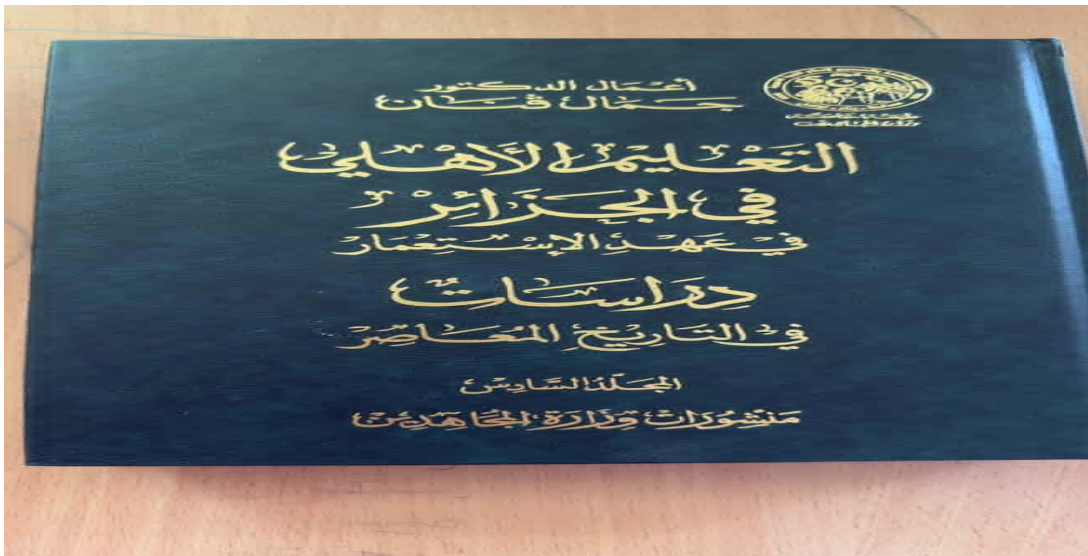 أعمال الدكتور
جمال قنان
التعليم الأهلي
في الجزائر
في عهد الإستعمار
دراسات
في التاريخ المعاصر
المجلد السادس
منشورات وزارة المجاهدين